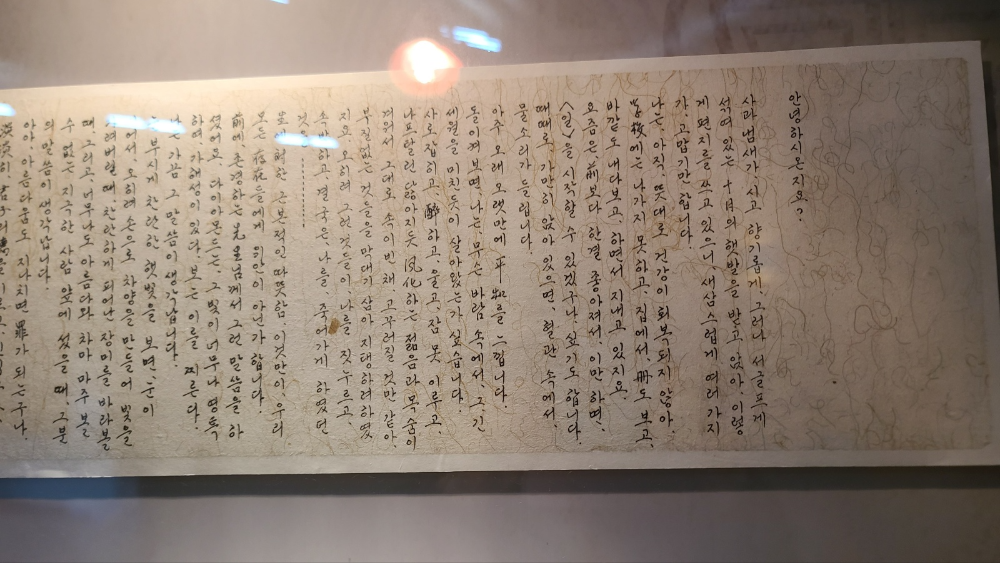 안녕하시온지요?
사과 냄새가 시고 향기롭게, 그러나 서글프게
석여 있는 十月의 햇발을 받고 앉아, 이렇
게 편지를 쓰고 있으니 새삼스럽게 여러가지
가 고맙기만 합니다.
나는, 아직, 뜻대로 건강이 회복되지 않아,
學校에는 나가지 못하고, 집에서, 冊도 보고,
바깥도 내다보고, 하면서 지내고 있지요.
요즘은, 前보다 한결 좋아져서, 이만하면,
<일>을 시작할 수 있겠구나, 싶기도 합니다.
때때로 가만히 앉아 있으면, 혈관 속에서,
물소리가 들립니다.
아주 오래 오랫만에 平和를 느낍니다.
돌이켜 보면, 나는 무슨 바람 속에서, 그 긴
세월을 미친듯이 살아왔는가 싶습니다.
사로잡히고, 醉하고, 울고, 잠 못 이루고,
나프탈린 닳아지듯 風化하는 젊음과 목숨이
겨워서, 그대로 속이 빈채 고꾸라질 것만 같아,
부질없는 것들을 막대기 삼아 지탱하려 하였
지요. 오히려 그런것들이 나를 짓누르고,
속박하고, 결국은, 나를, 죽어가게 하였던
것을
근본적인 따뜻함, 이것만이, 우리
모든 들에게 위안이 아닌가 합니다.
前에, 존경하는 先生님께서 그런 말씀을 하
셨어요. 다이아몬드는, 그 빛이 너무나 영롱
하여, 가해성이 있다. 보는 이를 찌른다.
나는 가끔 그 말씀이 생각납니다.
눈부시게 찬란한 햇빛을 보면, 눈이
서, 오히려 손으로 차양을 만들어 빛을
때, 찬란하게 피어난 장미를 바라볼
때, 그리고 너무나도 아름다와 차마 마주 볼
수 없는 지극한 사람 앞에 섰을 때, 그분
의 말씀이 생각납니다.
아아, 아름다움도 지나치면 罪가 되는구나.